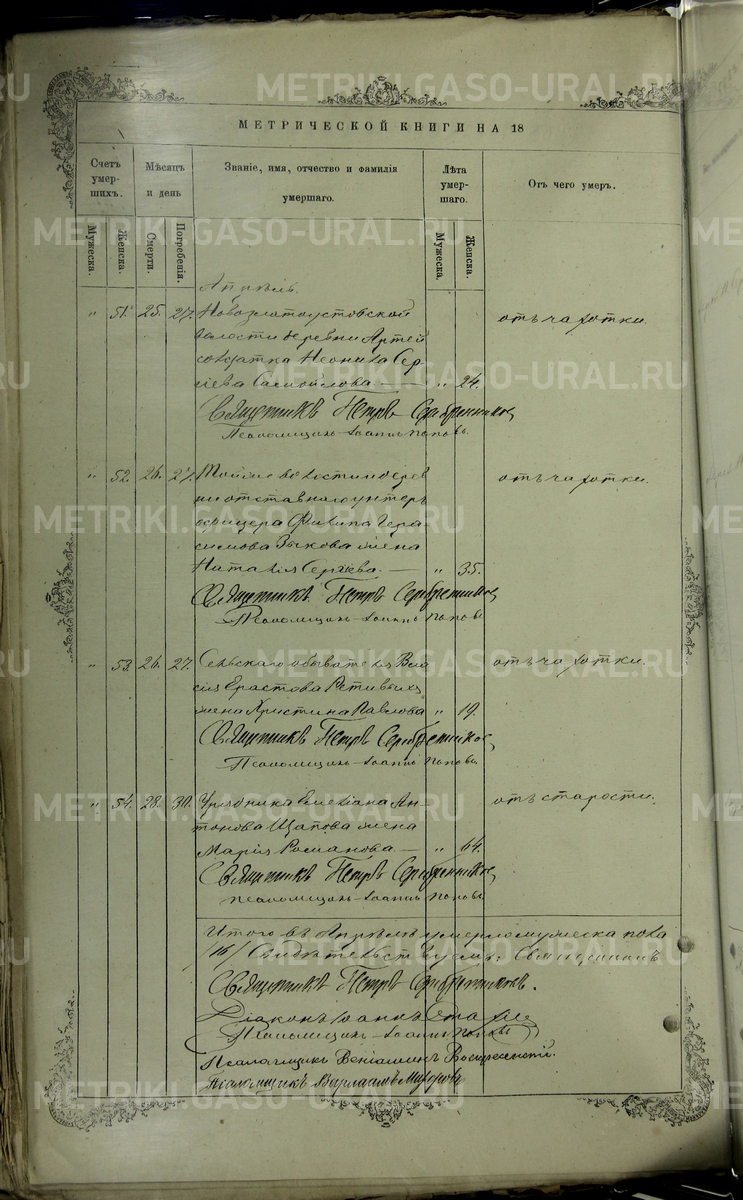 МЕТРИЧЕСКОЙ КНИГИ НА 18
Счетъ умер-шихъ.
Мѣсяцъ и день
Званіе, имя, отчество и фамилія умершаго.
Лѣта умер-шаго.
Отъ чего умеръ.
Мужеска.
Женска.
Смерти.
Погребенія.
Мужеска.
Женска.
Апрѣль.
" 51. 25. 27. Новозлатоустовской отъ чахотки.
волости деревни Артей
солдатка Сер
гіева Самойлова — " 24.
Священникъ Петръ Серебренниковъ
Псаломщикъ Іоаннъ Поповъ.
" 52. 26. 27. Той же волости и дерев отъ чахотки.
ни отставнаго унтеръ
офицера Филипа Гера
симова Зыкова жена
Наталія Сергѣева. — " 35.
Священникъ Петръ Серебренниковъ
Псаломщикъ Іоаннъ Поповъ
" 53. 26. 27. Сельскаго обывателя Вла отъ чахотки.
сія Ерастова Ретивыхъ
жена Христина Павлова " 19.
Священникъ Петръ Серебренниковъ
Псаломщикъ Іоаннъ Поповъ.
" 54. 28. 30. Урядника Емеліана Ан отъ старости.
тонова Щапова жена
Марія Романова — " 64.
Священникъ Петръ Серебренниковъ
Псаломщикъ Іоаннъ Поповъ.
Итого въ Апрѣлѣ умерло мужеска пола
/16/ Свидѣтельствуемъ:
Священникъ Петръ Серебренниковъ.
Діаконъ Іоаннъ
Псаломщикъ Іоаннъ Поповъ
Псаломщикъ Веніаминъ Воскресенскій.
Псаломщикъ Варлаамъ
METRIKI.GASO-URAL.RU